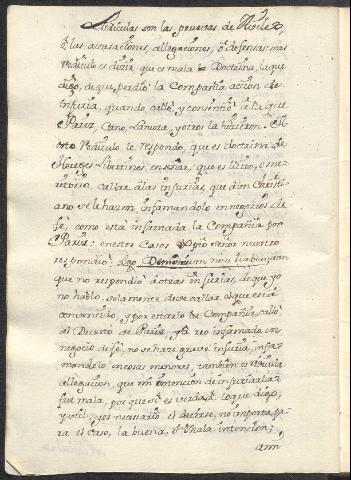 Ridiculas son las pruevas de Noclex,
ô las acusaciones, allegaciones, ô defensas: mas
ridiculo es dezir, que es mala la Doctrina, la que
digo, de que perdiò la Compañia accion de
injuria, quando callò, y consentiò à la que
Paris, Cano, Lanuza, y otros la hizieron. A
esto ridiculo, le respondo, que es doctrina de
Hereges Libertinos enseñar, que es licito, ô me-
ritorio, callar à las injurias, que à un Christi-
ano se le hazen, infamandolo en negocios de
fè, como està infamada la Compañia por
Paris: en estos casos Señor nuestro
respondiò: Ego Demonium non habeo, con
que no respondiò à otras injurias, de que yo
no hablo, solamente deve callar el que està
convencido, y por estarlo la Compañia, callò
al Decreto de Paris, y à reo infamado en
negocio de fè, no se haze grave injuria, infa-
mandolo en cosas menores, tambien es ridicula
allegacion, que mi intencion de injuriarla
fue mala, por que si es verdad lo que digo,
y util, y es necesario el dezirse, no importa pa-
ra el caso, la buena, ô mala intencion;
aun